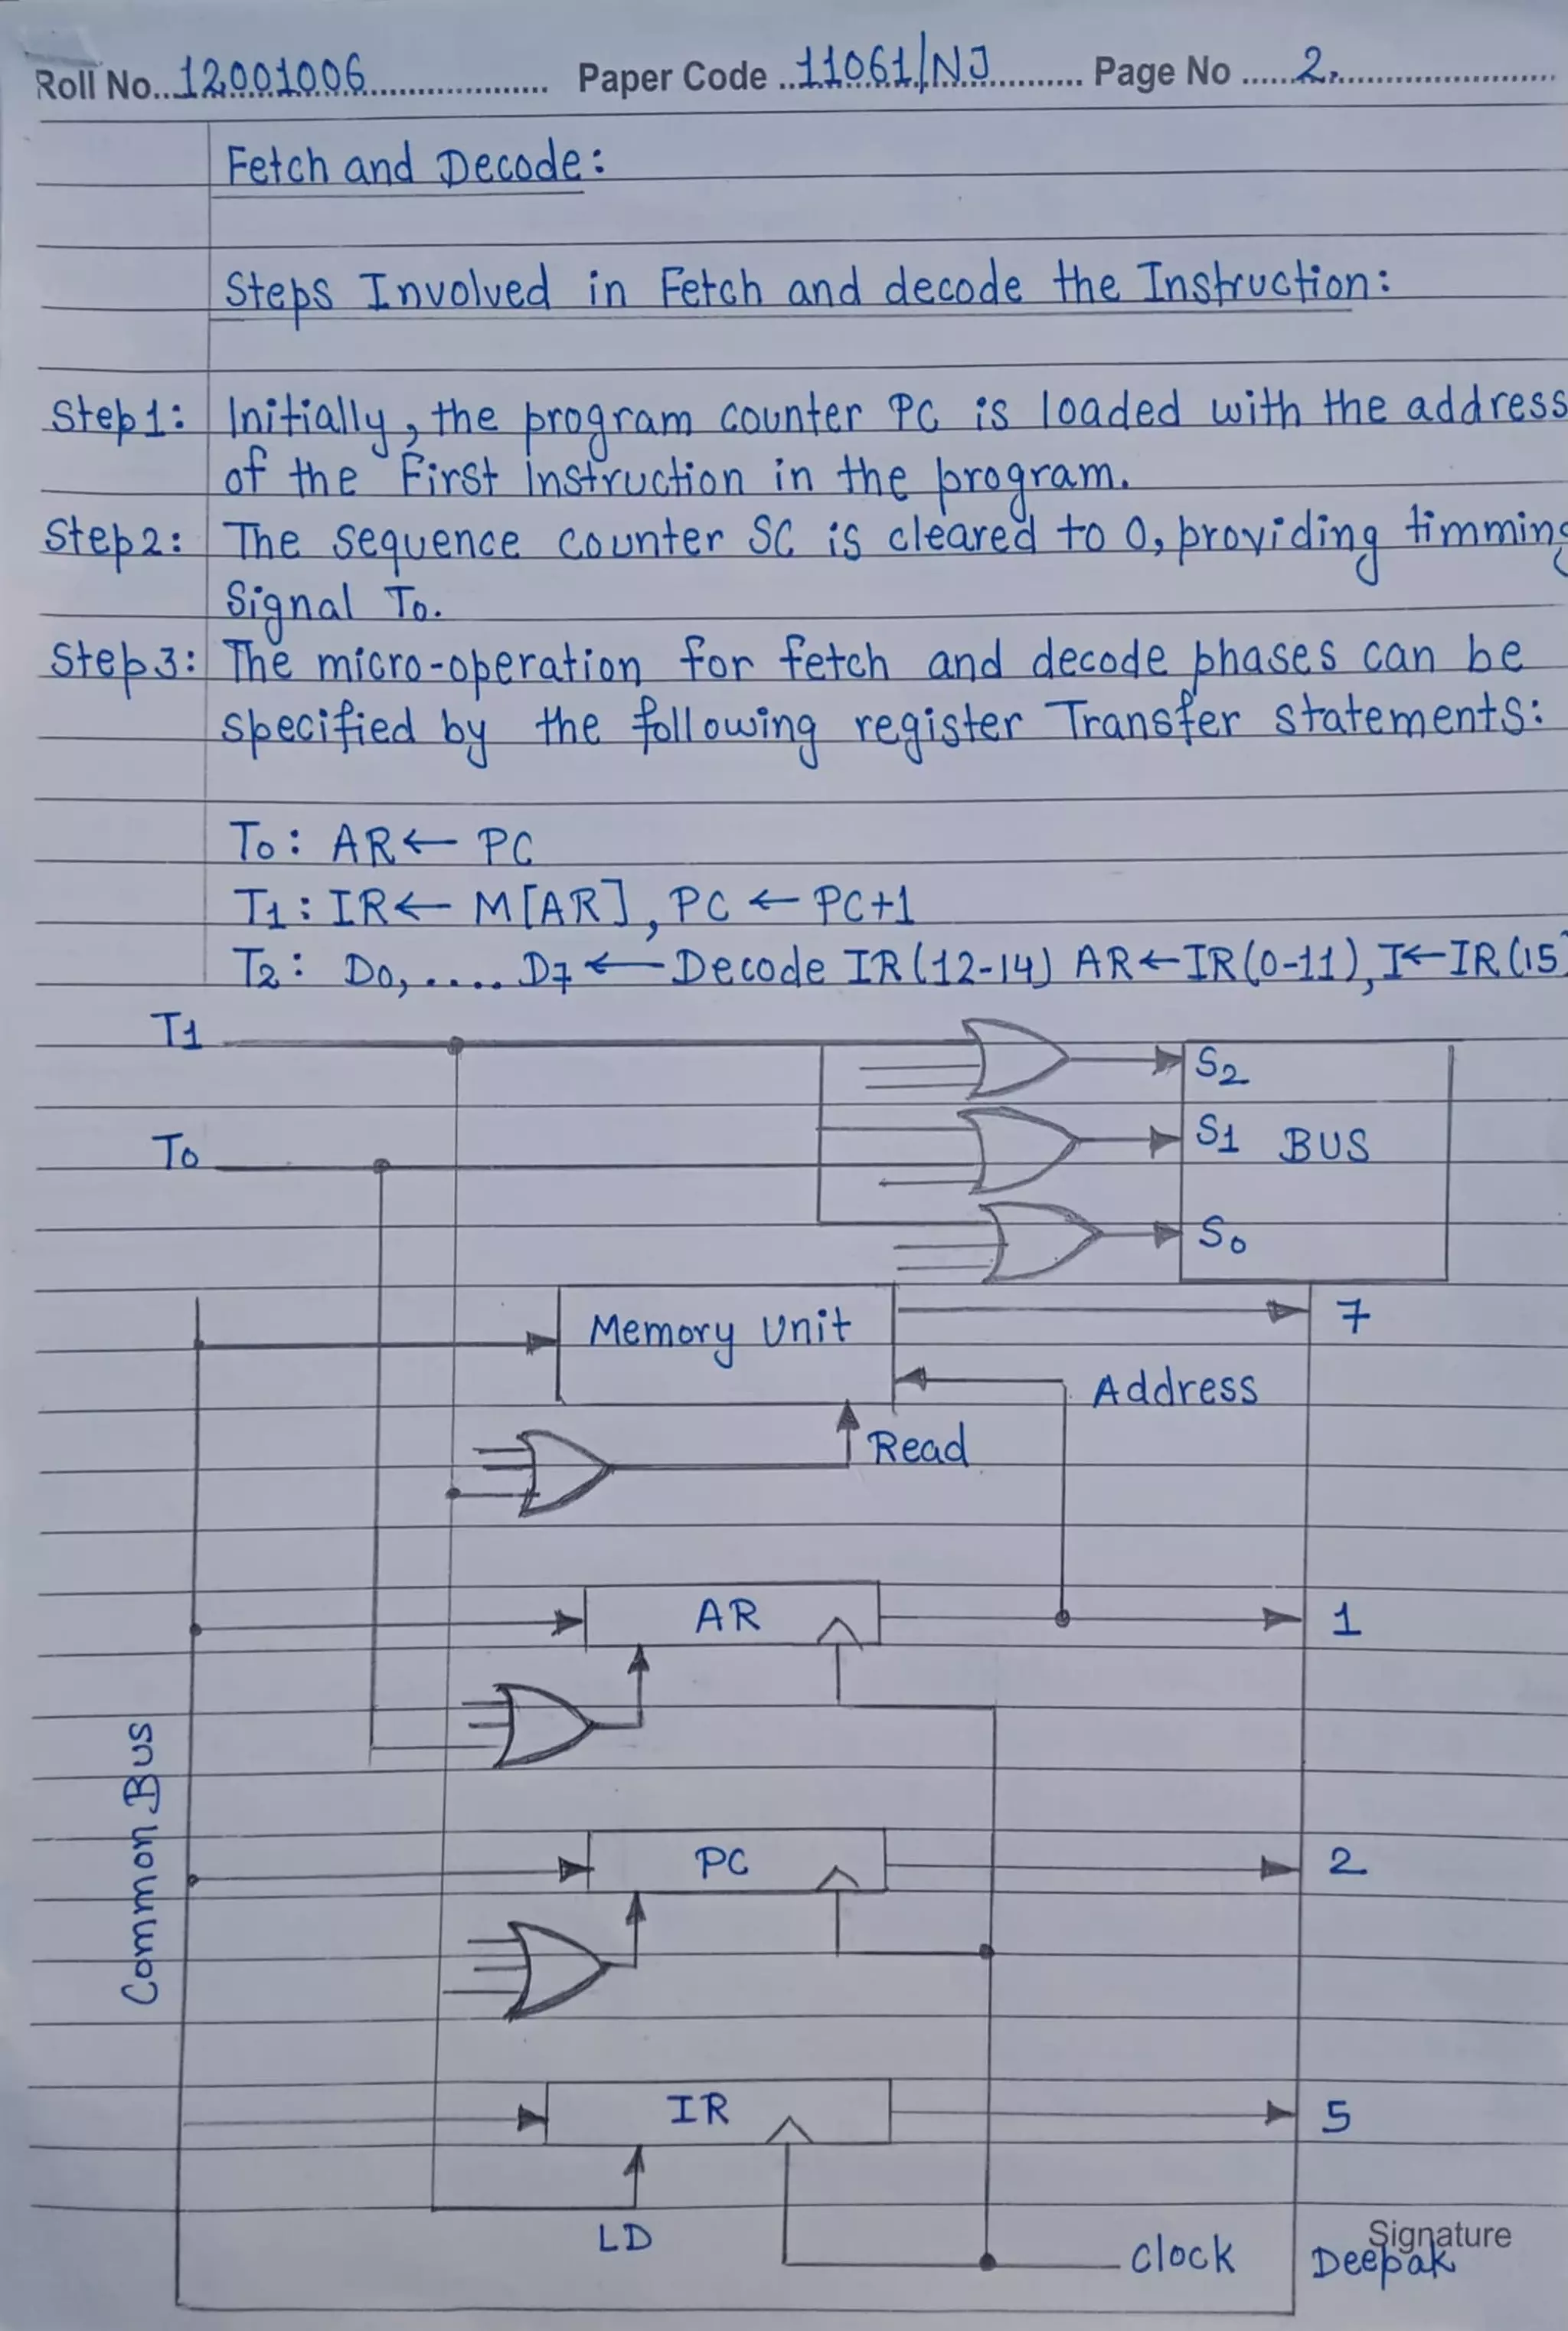 Roll No. 12001006 Paper Code 11061/NJ Page No 2.
Fetch and Decode:
Steps Involved in Fetch and decode the Instruction:
Step1: Initially, the program counter PC is loaded with the address
of the First instruction in the program.
Step2: The sequence counter SC is cleared to 0, providing timming
Signal T0.
Step3: The micro-operation for fetch and decode phases can be
specified by the following register Transfer statements:
T0: AR← PC
T1: IR← M[AR], PC ← PC+1
T2: D0, ..... D7 ← Decode IR(12-14) AR←IR(0-11), I←IR(15)
T1
S2
T0
S1 BUS
S0
Memory Unit
7
Address
Read
AR
1
Common Bus
PC
2
IR
5
LD
Clock
Signature
Deepak